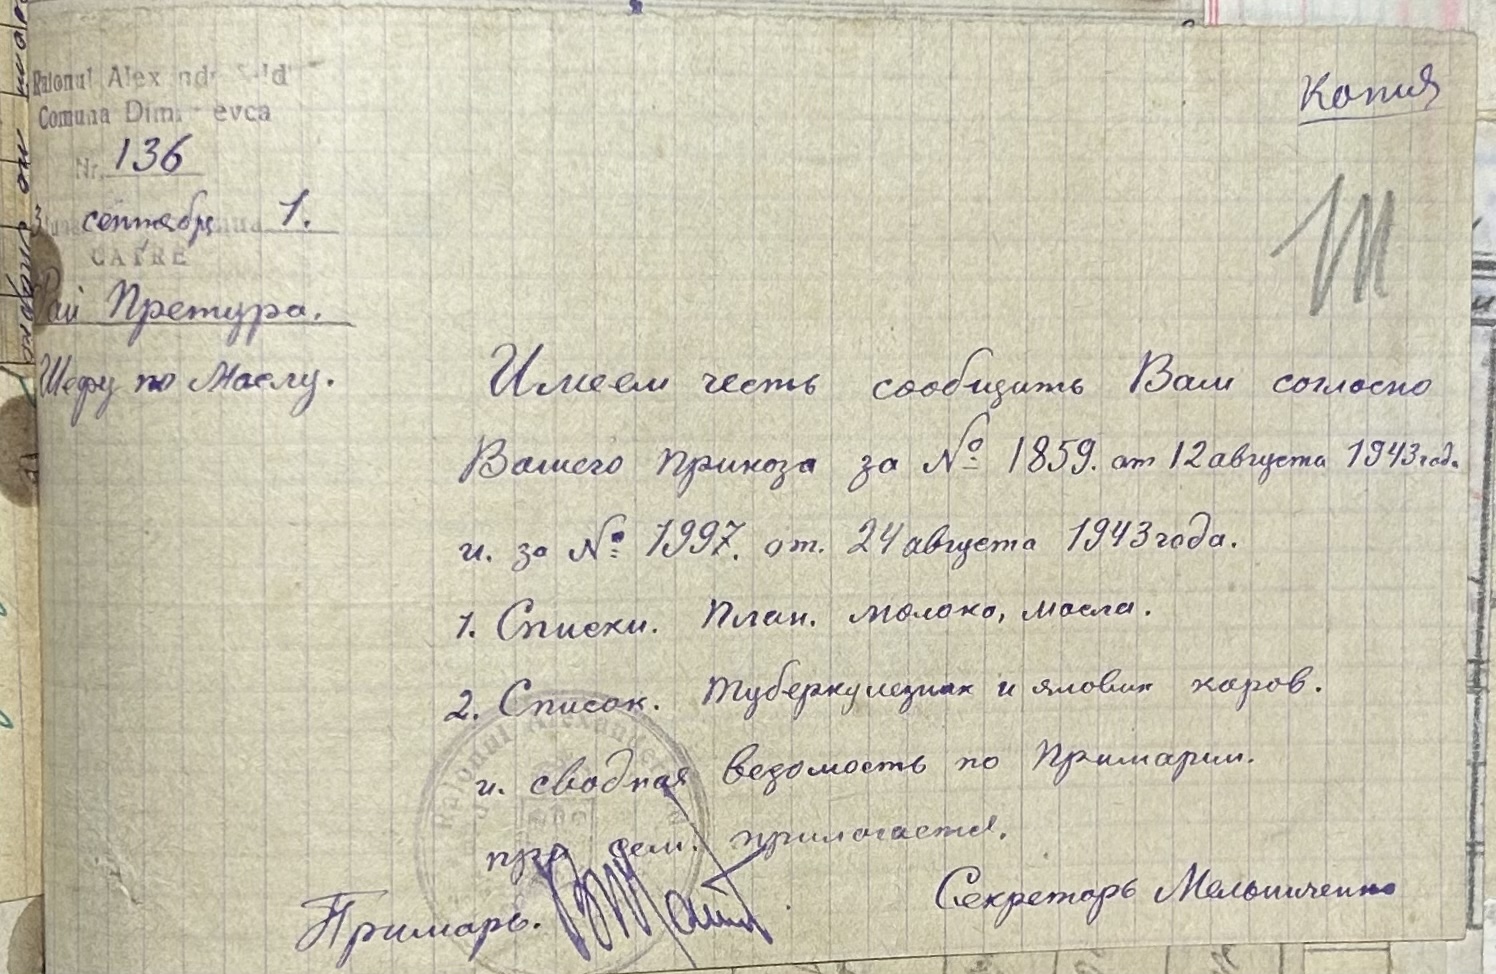 Копия
Raionul
Comuna
Nr. 136
сентября 1.
CATRE
Рай Претура.
Шефу по Маслу.
Имеем честь сообщить Вам согласно
Вашего приказа за № 1859. от 12 августа 1943 год.
и. за № 1997. от. 24 августа 1943 года.
1. Списки. План. молоко, масла.
2. Список. туберкулезных и ялових коров.
и. сводная ведомость по Примарии.
при сем. прилогается.
Примарь.
Секретарь Мельниченко
Raionul